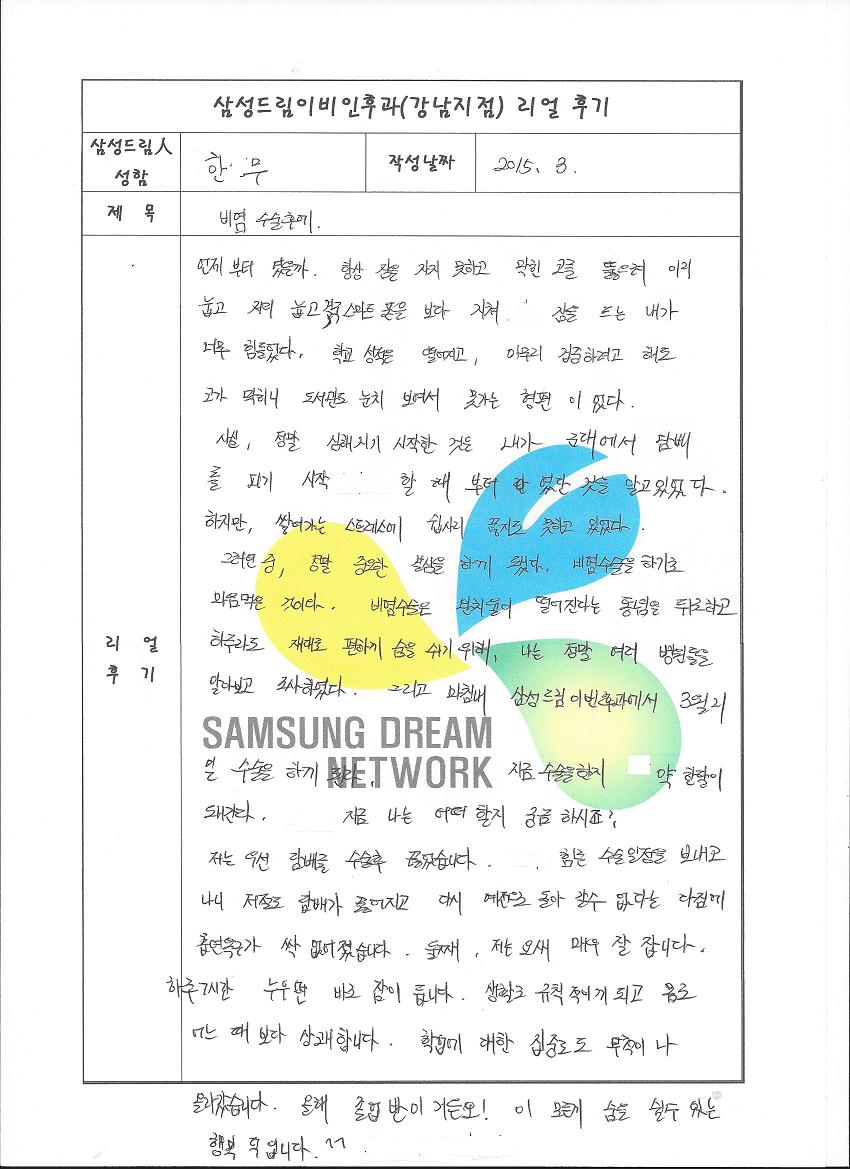 삼성드림이비인후과(강남지점) 리얼 후기
삼성드림人
성함
한 무
작성날짜
2015. 3.
제 목
비염 수술후에.
언제 부터 였을까. 항상 잠을 자지 못하고 막힌 코를 뚫으려 이리
눕고 저리 눕고 결국 스마트 폰을 보다 지쳐 잠을 드는 내가
너무 힘들었다. 학교 성적은 떨어지고, 아무리 집중하려고 해도
코가 막히니 도서관도 눈치 보여서 못가는 형편 이 었다.
사실, 정말 심해지기 시작한 것은 내가 군대에서 담배
를 피기 시작 할 때 부터 였단 것을 알고 있었 다.
하지만, 쌓여가는 스트레스에 쉽사리 끊지도 못하고 있었다.
그러던 중, 정말 중요한 결심을 하게 됐다. 비염수술을 하기로
마음먹은 것이다. 비염수술은 떨어진다는 통념을 뒤로하고
하루라도 제대로 편하게 숨을 쉬기 위해, 나는 정말 여러 병원들을
알아보고 조사하였다. 그리고 마침내 삼성드림이빈후과에서 3월 2
리 얼
후 기
SAMSUNG DREAM
NETWORK
일 수술을 하게 된다. 지금 수술을한지 약 한달이
돼간다. 지금 나는 어떠 할지 궁금 하시죠?
저는 우선 담배를 수술후 끊었습니다. 힘든 수술일정을 보내고
나니 저절로 담배가 끊어지고 다시 예전으로 돌아 갈수 없다는 다짐에
흡연욕구가 싹 없어졌습니다. 둘째, 저는 요새 매우 잘 잡니다.
하루 7시간 누우면 바로 잠이 듭니다. 생활도 규칙적이게 되고 몸도
어느 때 보다 상쾌합니다. 학업에 대한 집중도도 무척이 나
올라갔습니다. 올해 졸업 반이 거든요! 이 모든게 숨을 쉴수 있는
행복 덕입니다. ^^